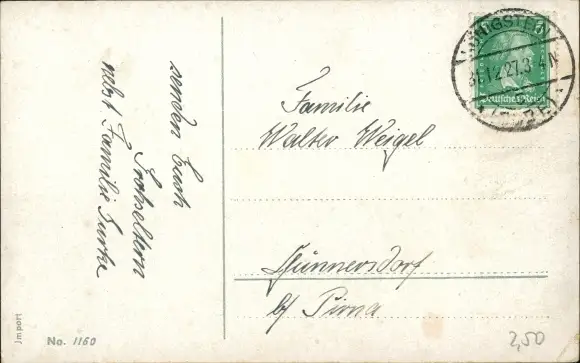 senden Euch
Großeltern
nebst Familie Kurtze
Jmport
No. 1160
KÖNIGSTEIN
31.12.27.3-4N
Deutsches Reich
Familie
Walter Weigel
Cunnersdorf
b/ Pirna
2,50